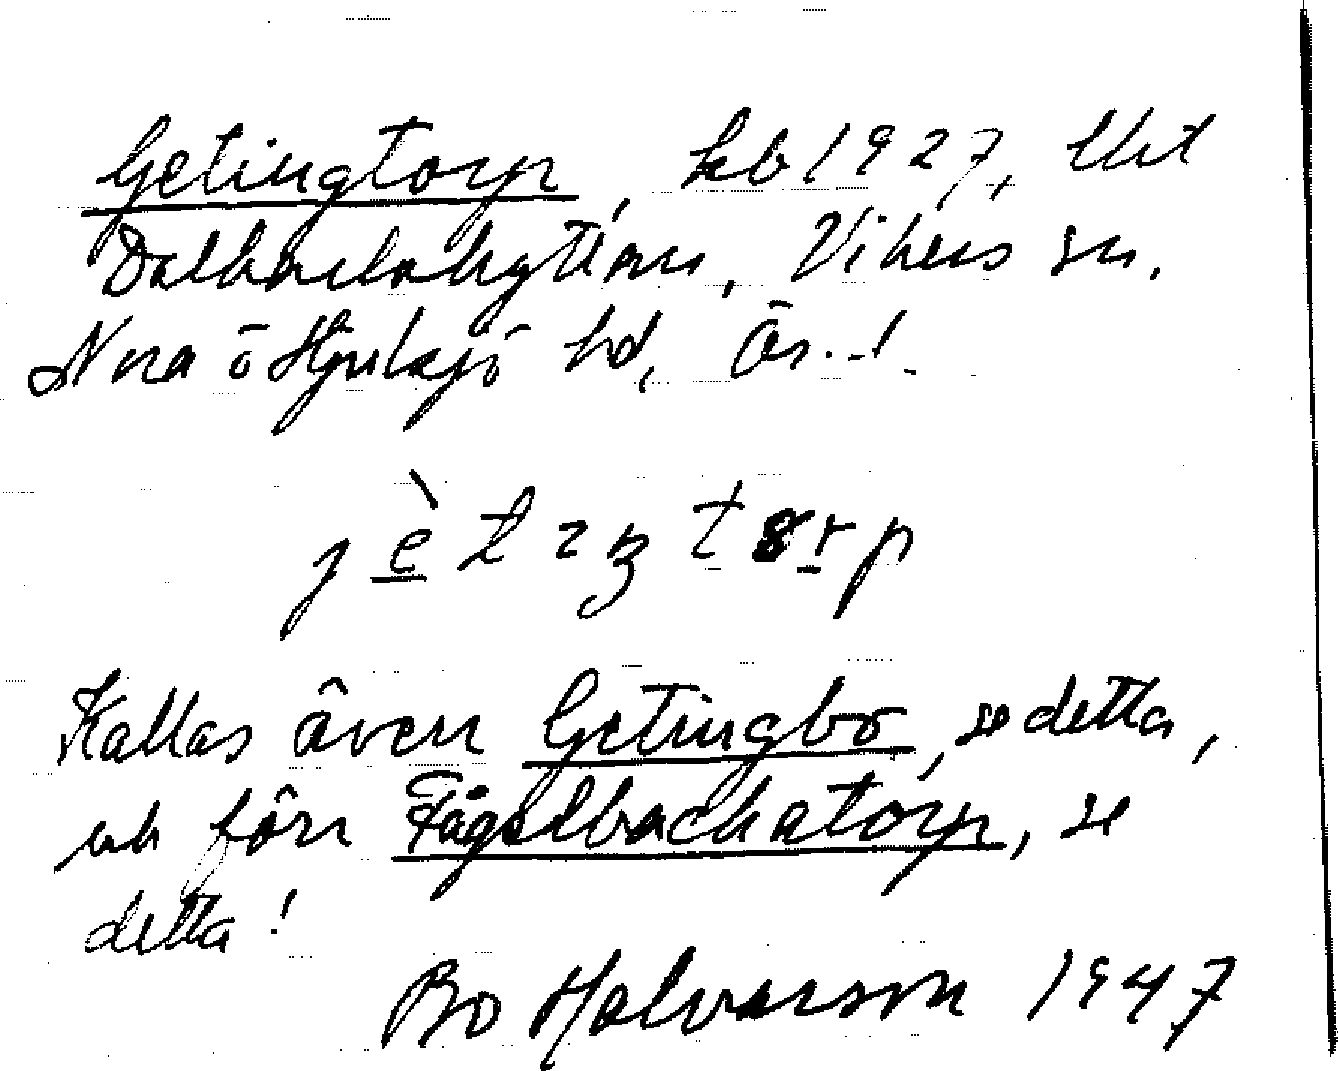 Getingtorp, kb 1927, tkt
Dalkarlshyttans, Vikers sn.
Nora o Hjulsjö hd, Ör.
Kallas även Getingbo, se detta,
och förr Fågelbackatorp, se
detta!
Bo Halvarson 1947